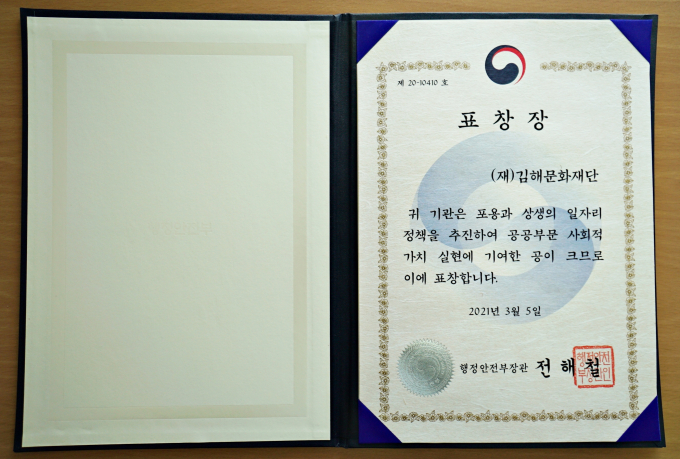 제 20-10410 호
표 창 장
(재)김해문화재단
귀 기관은 포용과 상생의 일자리
정책을 추진하여 공공부문 사회적
가치 실현에 기여한 공이 크므로
이에 표창합니다.
2021년 3월 5일
행정안전부장관 전 해 철
행정안전
부장관인